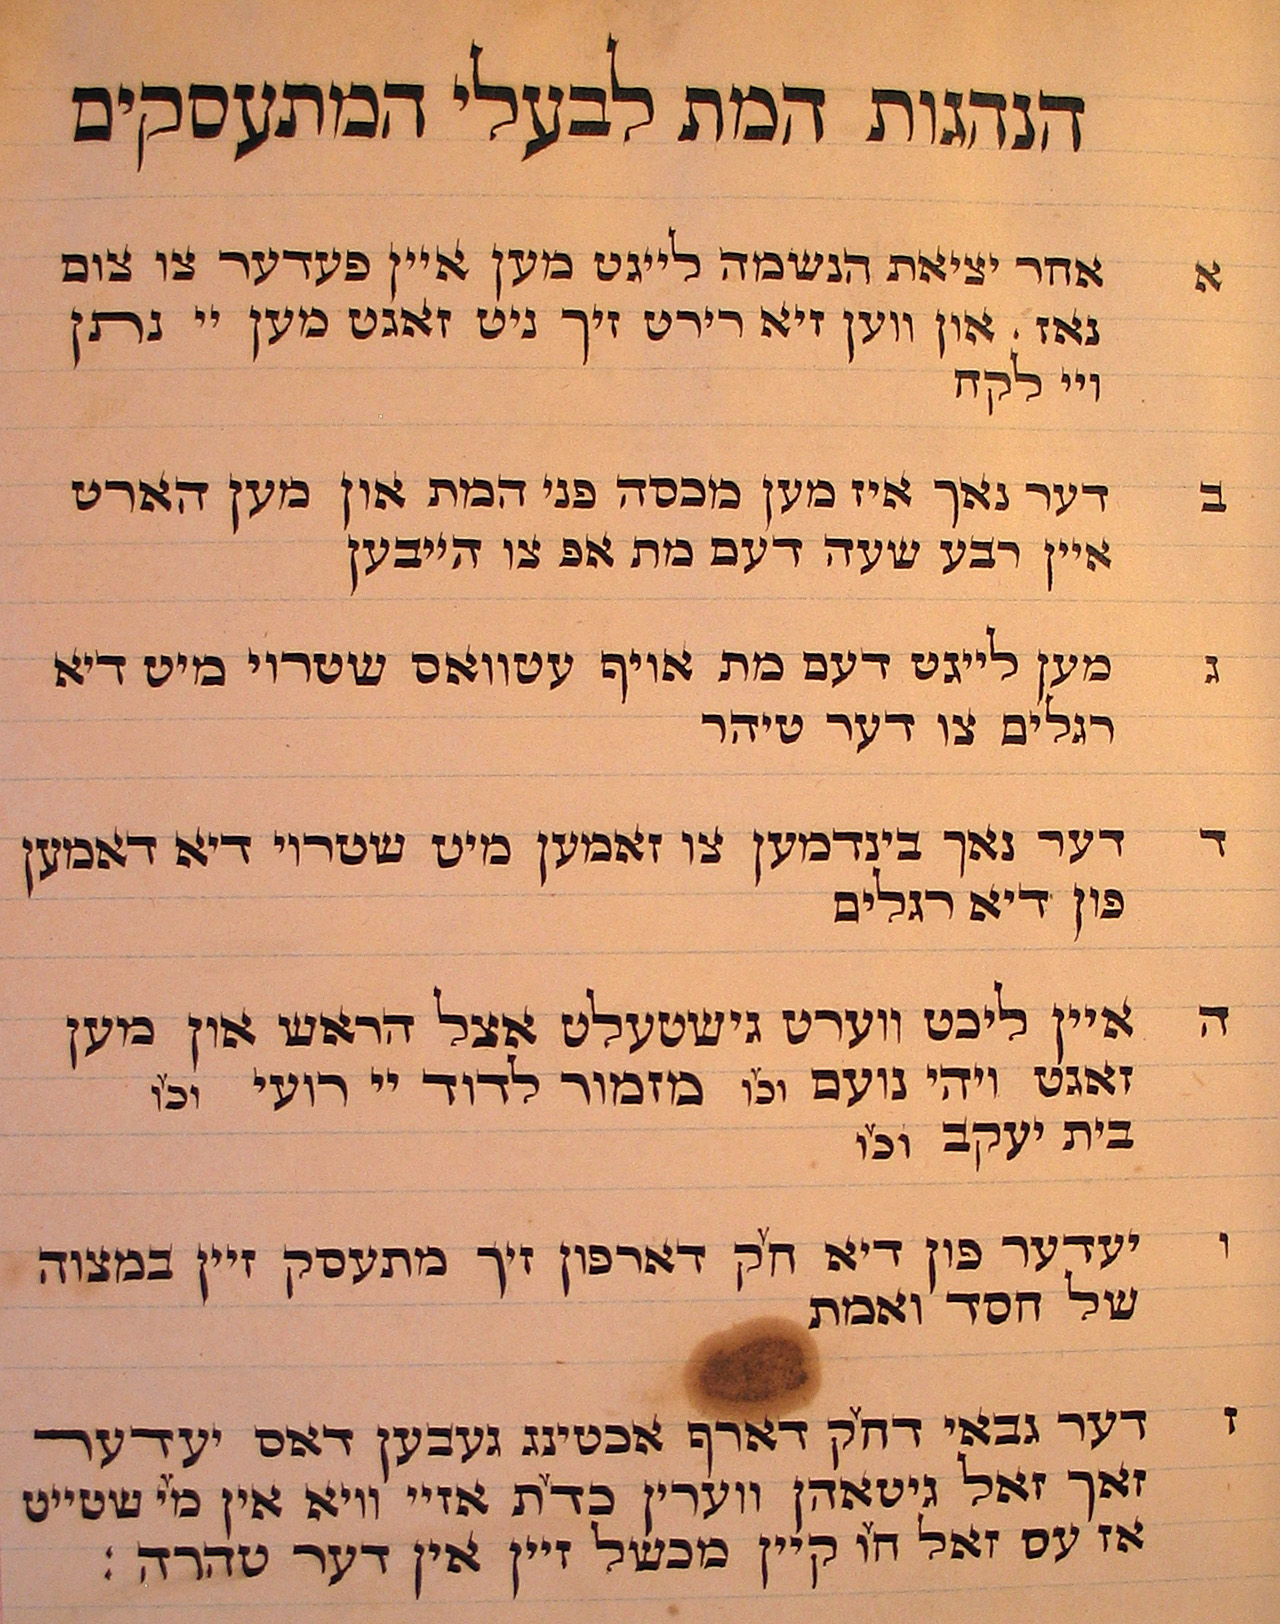 הנהגות המת לבעלי המתעסקים
א אחר יציאת הנשמה לייגט מען איין פעדער צו צום
נאז . און ווען זיא רירט זיך ניט זאגט מען יי נתן
ויי לקח
ב דער נאך איז מען מכסה פני המת און מען הארט
איין רבע שעה דעם מת אפ צו הייבען
ג מען לייגט דעם מת אויף עטוואס שטרוי מיט דיא
רגלים צו דער טיהר
ד דער נאך בינדמען צו זאמען מיט שטרוי דיא דאמען
פון דיא רגלים
ה איין ליכט ווערט גישטעלט אצל הראש און מען
זאגט ויהי נועם וכ'ו מזמור לדוד יי רועי וכ'ו
בית יעקב וכ'ו
ו יעדער פון דיא ח'ק דארפון זיך מתעסק זיין במצוה
של חסד ואמת
ז דער גבאי דח'ק דארף אכטינג געבען דאס יעדער
זאך זאל גיטאהן ווערין כד'ת אזיי וויא אין מ'י שטייט
אז עס זאל ח'ו קיין מכשל זיין אין דער טהרה :